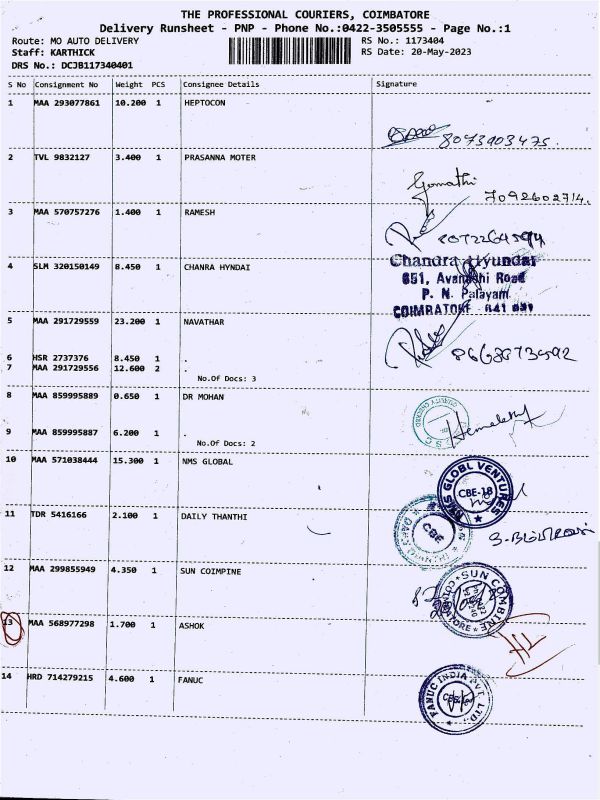 THE PROFESSIONAL COURIERS, COIMBATORE
Delivery Runsheet - PNP - Phone No.:0422-3505555 - Page No.:1
Route: MO AUTO DELIVERY RS No.: 1173404
Staff: KARTHICK RS Date: 20-May-2023
DRS No.: DCJB117340401
S No Consignment No Weight PCS Consignee Details Signature
1 MAA 293077861 10.200 1 HEPTOCON
8073903475.
2 TVL 9832127 3.400 1 PRASANNA MOTER
Gomathi
7092602714.
3 MAA 570757276 1.400 1 RAMESH
4 SLM 320150149 8.450 1 CHANRA HYNDAI
Chandra Hyundai
651, Avanashi Road
P. N. Palayam
COIMBATORE - 641
5 MAA 291729559 23.200 1 NAVATHAR
6 HSR 2737376 8.450 1 .
7 MAA 291729556 12.600 2 .
No.Of Docs: 3
8 MAA 859995889 0.650 1 DR MOHAN
9 MAA 859995887 6.200 1 .
No.Of Docs: 2
10 MAA 571038444 15.300 1 NMS GLOBAL
NMS GLOBL VENTURES
CBE-18
11 TDR 5416166 2.100 1 DAILY THANTHI
CBE
12 MAA 299855949 4.350 1 SUN COIMPINE
SUN COMBINE
13 MAA 568977298 1.700 1 ASHOK
14 HRD 714279215 4.600 1 FANUC
FANUC INDIA PVT. LTD.